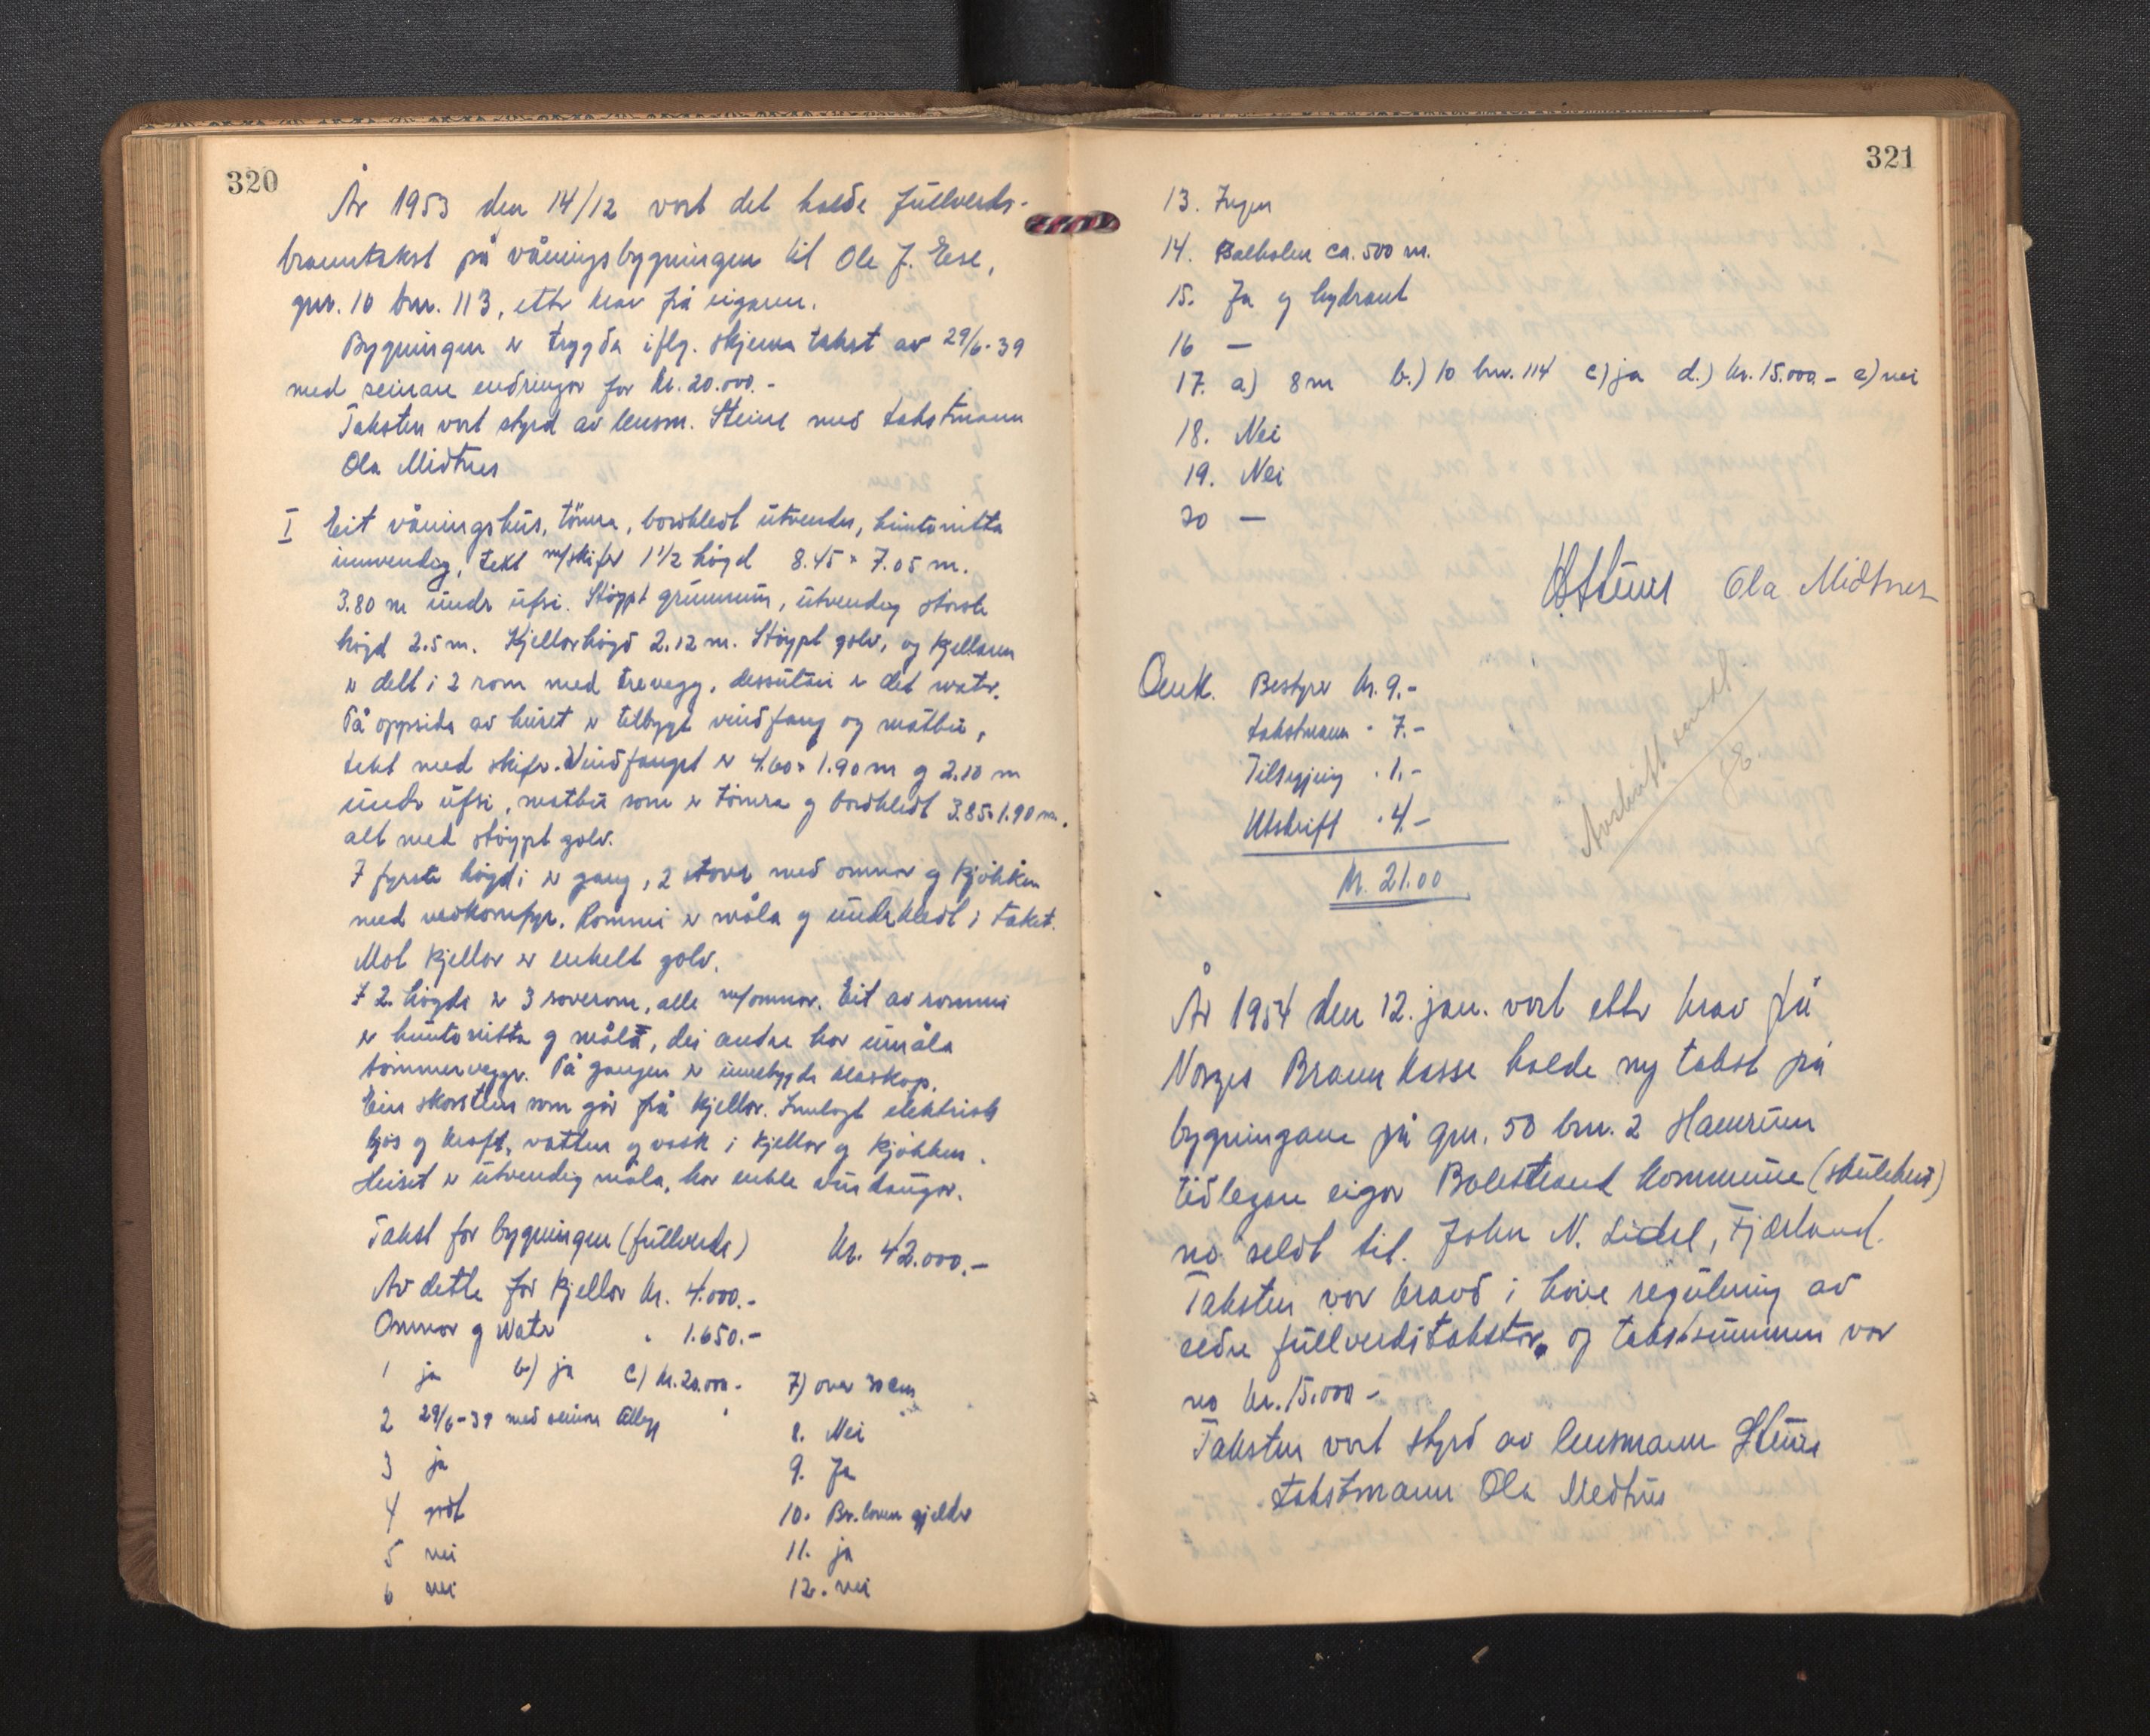 320
År 1953 den 14/12 vart det halde fullverds-
branntakst på våningsbygningen til Ole J. Ese,
gnr. 10 bnr. 113, ettr krav frå eigaren.
Bygningen er trygda iflg. skjema takst av 29/6-39
med seinare endringar for kr. 20.000.-
Taksten vart styrd av lensm. Steine med takstmann
Ola Midtnes
I Eit våningshus, tømra, bordkledt utvendes, huntonitta
innvendig, tekt m/skifer 1 1/2 høgd 8.45 × 7.05 m.
3.80 m undr ufsi. Støypt grunnmur, utvendig største
høgd 2.5 m. Kjellarhøgd 2.12 m. Støypt golv, og kjellaren
er delt i 2 rom med trevegg, dessutan er det watr.
På oppsida av huset er tilbygt vindfang og matbu,
tekt med skifer. Vindfanget er 4.60 × 1.90 m og 2.10 m
undr ufsi, matbu som er tømra og bordkledt 3.85 × 1.90 m.
alt med støypt golv.
I fyrste høgdi er gang, 2 stover med omnar og kjøkken
med vedkomfyr. Rommi er måla og undrkledt i taket.
Mot kjellar er enkelt golv.
I 2. høgde er 3 soverom, alle m/omnar. Eit av rommi
er huntonitta og måla, dei andre har umåla
tømmerveggr. På gangen er innebygde klæskap.
Ein skorstein som går frå kjellar. Innlagt elektrisk
ljos og kraft, vatten og vask i kjellar og kjøkken.
Huset er utvendig måla, har enkle vindaugor.
Takst for bygningen (fullverde) kr. 42.000.-
Av dette for kjellar kr. 4.000.-
Omnar og Water " 1.650.-
1 ja b) ja c) kr. 20.000.-
2 29/6-39 med seinare tillegg
3 ja
4 godt
5 nei
6 nei
7) over 30 cm
8. Nei
9. Ja
10. Br.loven gjelder
11. ja
12. nei
321
13. Ingen
14. Balholm ca. 500 m.
15. Ja og hydrant
16 —
17. a) 8 m b.) 10 bnr. 114 c) ja d.) kr. 15.000.- e) nei
18. Nei
19. Nei
20 —
Steine Ola Midtnes
Bestyrer kr. 9.-
takstmann " 7.-
Tilsegjing " 1.-
Utskrift " 4.-
kr. 21.00
Avskrift sendt
År 1954 den 12. jan. vart ettr krav frå
Norges Brannkasse halde ny takst på
bygningane på gnr. 50 bnr. 2 Hamrum
tidlegare eigar Balestrand kommune (skulehus)
no seldt til John N. Lidal, Fjærland.
Taksten var kravd i høve regulering av
eldre fullverditakstar og takstsummen var
no kr. 15.000 -
Taksten vart styrd av lensmann Steine
takstmann Ola Midtnes